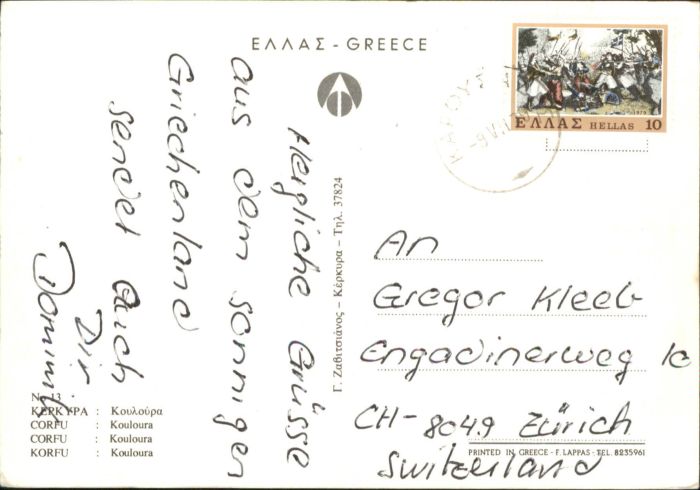 ΕΛΛΑΣ - GREECE
ΕΛΛΑΣ HELLAS 10
1979
Herzliche Grüsse
aus dem sonnigen
Griechenland
sendet euch
Dir
Dominik
Γ. Ζαβιτσιάνος – Κέρκυρα – Τηλ. 37824
An
Gregor Kleeb
Engadinerweg 1c
CH-8049 Zürich
Switzerland
Νο 13
ΚΕΡΚΥΡΑ : Κουλούρα
CORFU : Kouloura
CORFU : Kouloura
KORFU : Kouloura
PRINTED IN GREECE - F. LAPPAS - TEL. 8235961